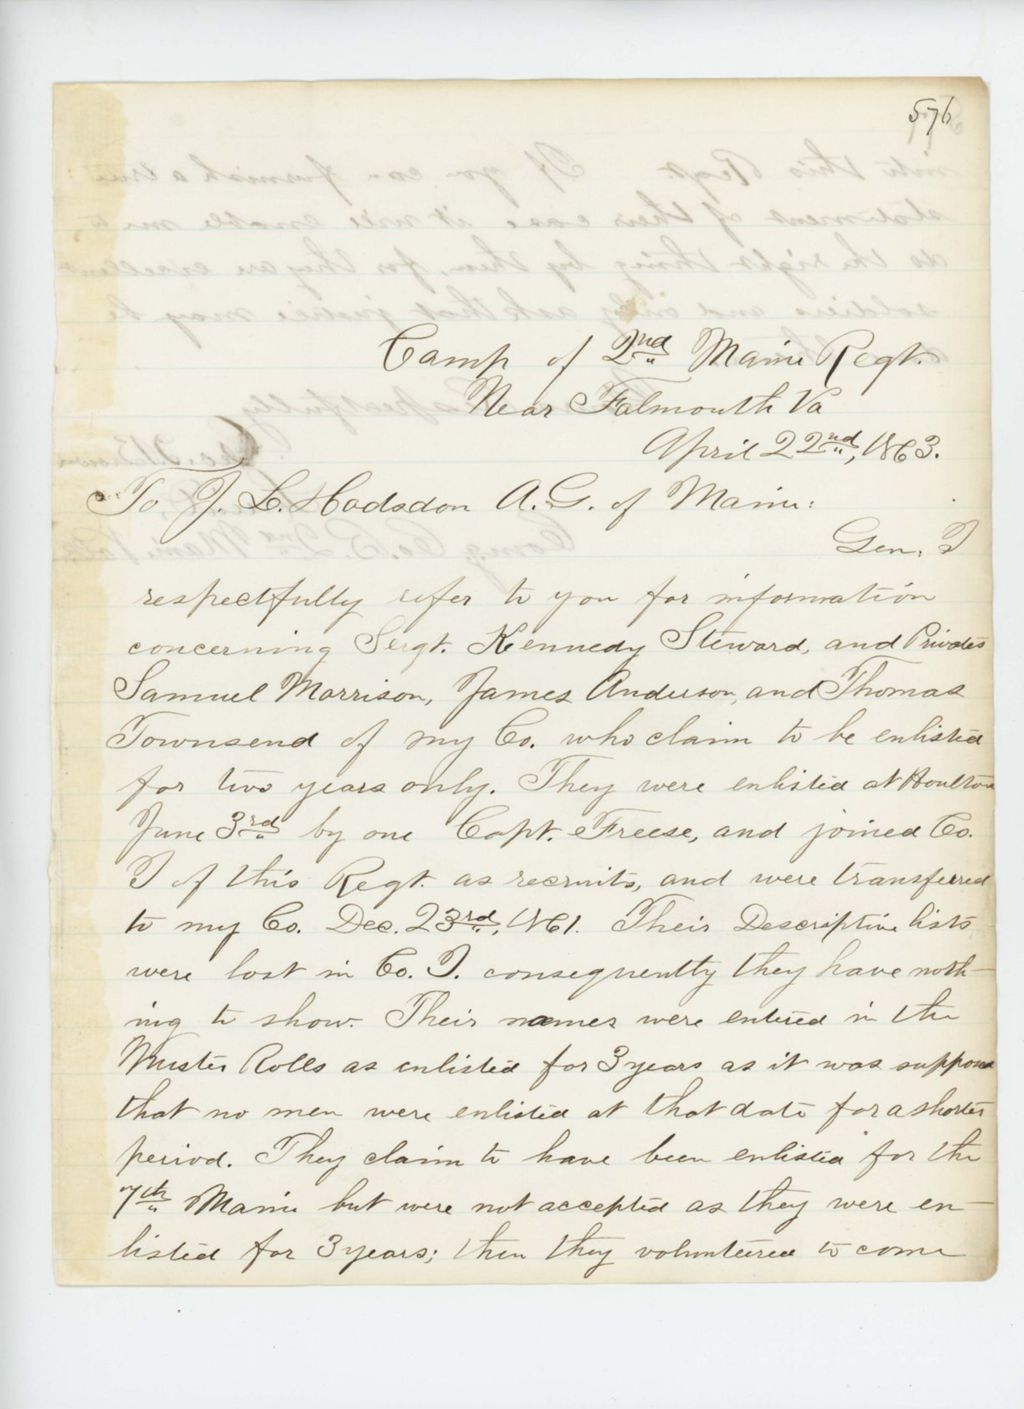 576
Camp of 2nd Maine Regt.
Near Falmouth Va
April 22nd, 1863.
To J. L. Hodsdon A. G. of Maine:
Gen. I
respectfully refer to you for information
concerning Sergt. Kennedy Steward, and Privates
Samuel Morrison, James Anderson, and Thomas
Townsend of my Co. who claim to be enlisted
for two years only. They were enlisted at Houlton
June 3rd by one Capt. Freese, and joined Co.
I of this Regt. as recruits, and were transferred
to my Co. Dec. 23rd, 1861. Their Descriptive lists
were lost in Co. I. consequently they have noth-
ing to show. Their names were entered in the
Muster Rolls as enlisted for 3 years as it was supposed
that no men were enlisted at that date for a shorter
period. They claim to have been enlisted for the
7th Maine but were not accepted as they were en-
listed for 3 years; then they volunteered to come